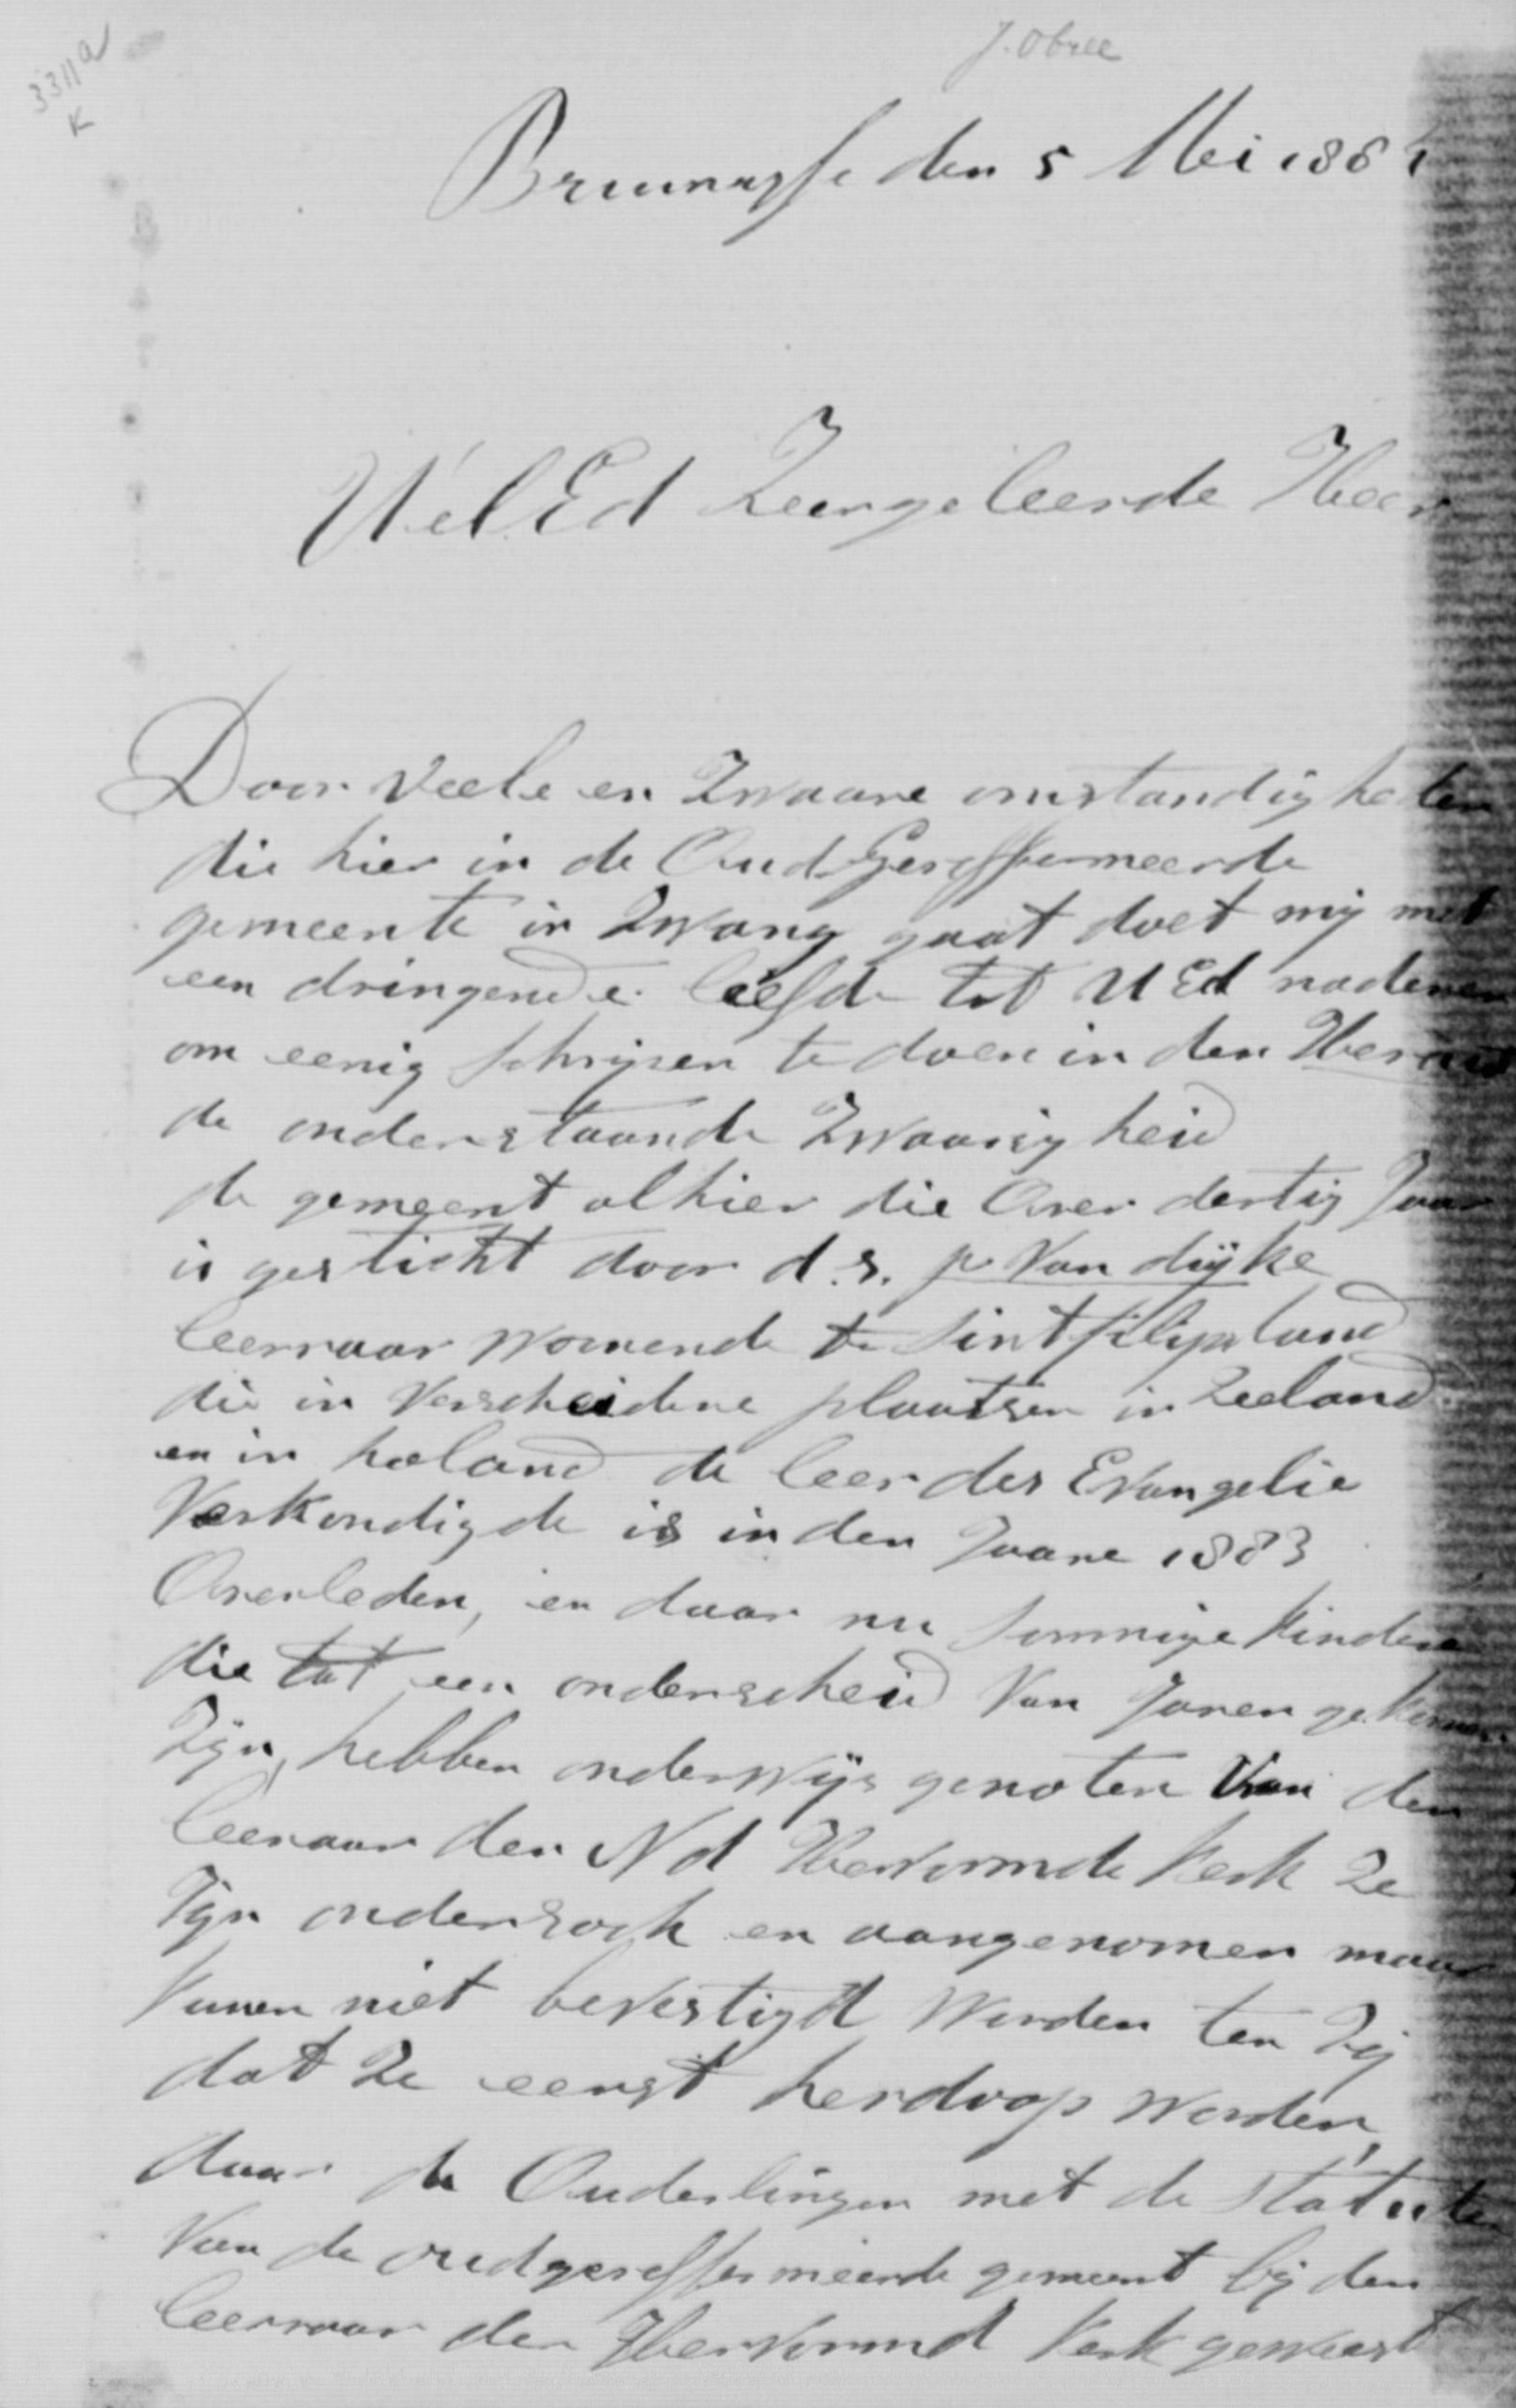 J. Obree
3311a
K
Bruinnysse den 5 Mei 188
WelEd Zeergeleerde Heer
Door Veele en Zwaare omstandigheden
die hier in de Oud Gereffermeerde
gemeente in Zwang gaat doet mij met
een dringende liefde tot UEd naderen
om eenig schrijven te doen in den Heraut
de onderstaande Zwaarigheid
de gemeent alhier die Over dertig Jaar
is gesticht door d.s. p. Van dijke
leerraar wonende te Sintfilipsland
die in Verscheidene plaatsen in Zeeland
en in holand de leer des Evangelie
Verkondigde is in den Jaare 1883
Overleden, en daar nu sommige kindere
die tot een onderscheid Van Jaren gekomen
Zijn, hebben onderwijs genoten Van den
leeraar der Nd Hervormde Kerk Ze
Zijn ondersoch en aangenomen maar
kunen niet bevestigd worden ten Zij
dat Ze eerst herdoop worden,
daar de Ouderlingen met de statuten
Van de oudgereffermeerde gemeent bij den
leerraar der Hervormd Kerk geweest